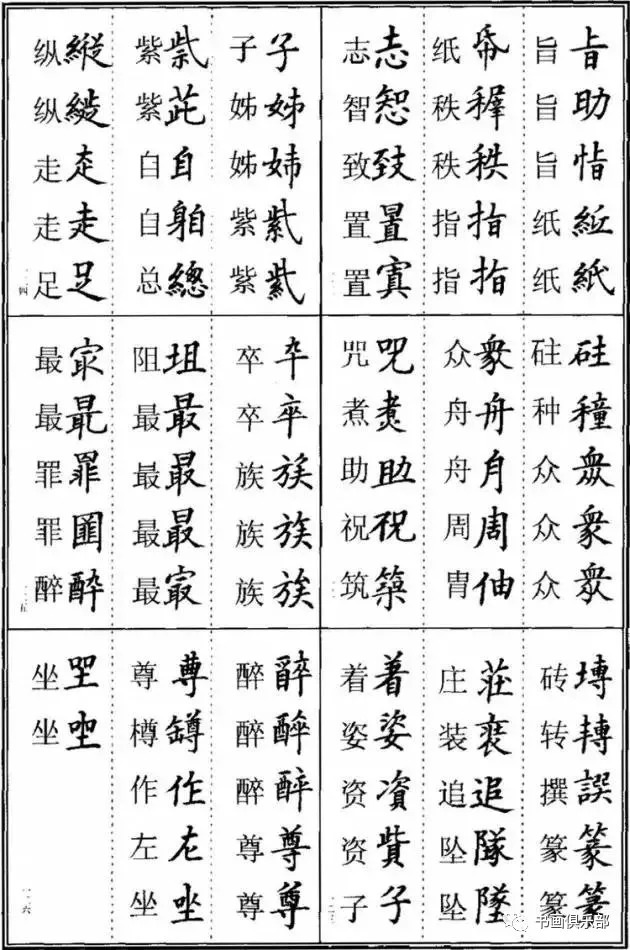 旨 㫖 旨 助 旨 恉 纸 紅 纸 紙
纸 帋 秩 稺 秩 秩 指 指 指 指
志 志 智 恕 致 致 置 置 置 寘
砫 硅 种 穜 众 衆 众 衆 众 衆
众 衆 舟 舟 舟 月 周 周 胄 伷
咒 咒 煮 煑 助 助 祝 祝 筑 築
砖 塼 转 轉 撰 譔 篆 篆 篆 篆
庄 莊 装 裘 追 追 坠 隊 坠 墜
着 着 姿 姿 资 資 资 貲 子 子
子 子 姊 姊 姊 姉 紫 紫 紫 紫
紫 祡 紫 茈 自 自 自 舶 总 總
纵 縱 纵 縱 走 赱 走 走 足 足
卒 卆 卒 卒 族 族 族 族 族 族
阻 坥 最 最 最 最 最 最 最 冣
最 冣 最 最 罪 罪 罪 圛 醉 酔
醉 醉 醉 醉 醉 酔 尊 尊 尊 尊
尊 尊 樽 罇 作 作 左 左 坐 坐
坐 坐 坐 坐
书画俱乐部